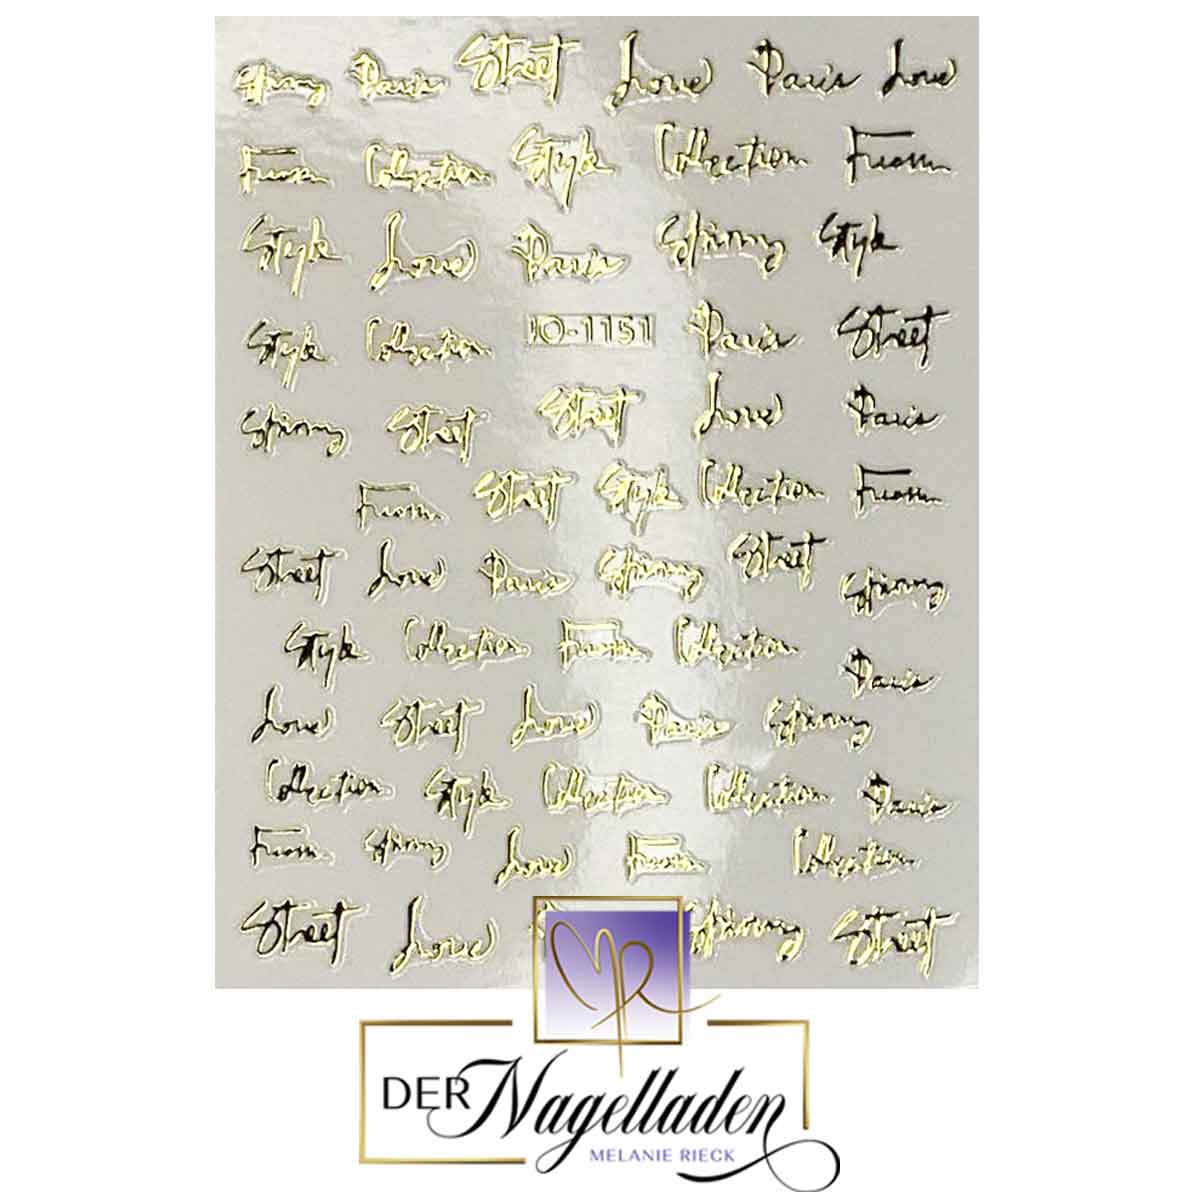 Spinny Paris Street Love Paris Love
From Collection Style Collection From
Style Love Paris Spinny Style
Style Collection JO-1151 Paris Street
Spinny Street Street Love Paris
From Street Style Collection From
Street Love Paris Spinny Street Spinny
Style Collection From Collection Paris
Love Street Love Paris Spinny
Collection Style Collection Collection Paris
From Spinny Love From Collection
Street Love Spinny Street
MR
DER Nagelladen
MELANIE RIECK